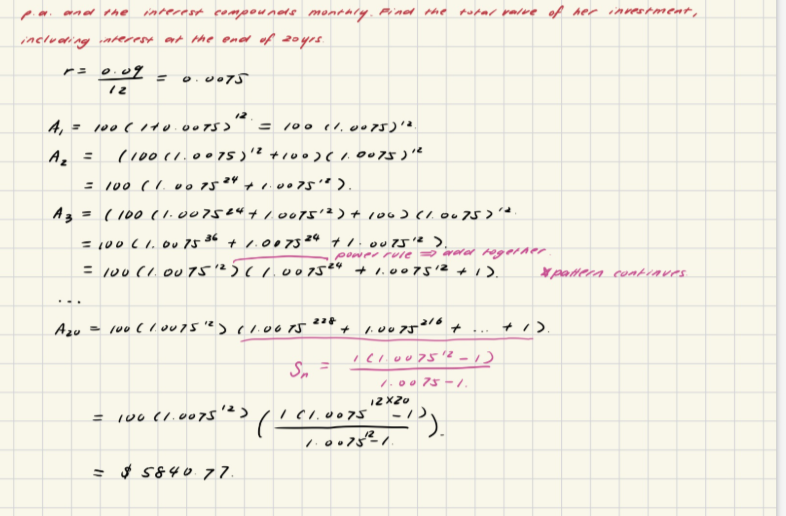 p.a. and the interest compounds monthly. Find the total value of her investment,
including interest at the end of 20yrs.
r = 0.09/12 = 0.0075
A₁ = 100(1+0.0075)¹² = 100(1.0075)¹²
A₂ = (100(1.0075)¹² + 100)(1.0075)¹²
= 100(1.0075²⁴ + 1.0075¹²).
A₃ = (100(1.0075²⁴ + 1.0075¹²) + 100)(1.0075)¹²
= 100(1.0075³⁶ + 1.0075²⁴ + 1.0075¹²).
power rule ⇒ add together
= 100(1.0075¹²)(1.0075²⁴ + 1.0075¹² + 1). *pattern continues
...
A₂₀ = 100(1.0075¹²)(1.0075²²⁸ + 1.0075²¹⁶ + ... + 1).
Sₙ = 1(1.0075¹² - 1)/1.0075 - 1.
= 100(1.0075¹²)(1(1.0075¹²ˣ²⁰ - 1)/1.0075¹² - 1).
= $5840.77.